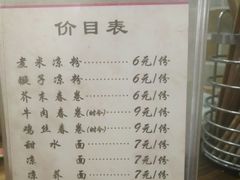 价目表
麦米凉粉………6元/份
猴子凉粉………6元/份
芥末春卷………6元/份
牛肉春卷(时令)……9元/份
鸡丝春卷(时令)……9元/份
甜水面………7元/份
凉面………7元/份
凉荞面………7元/份